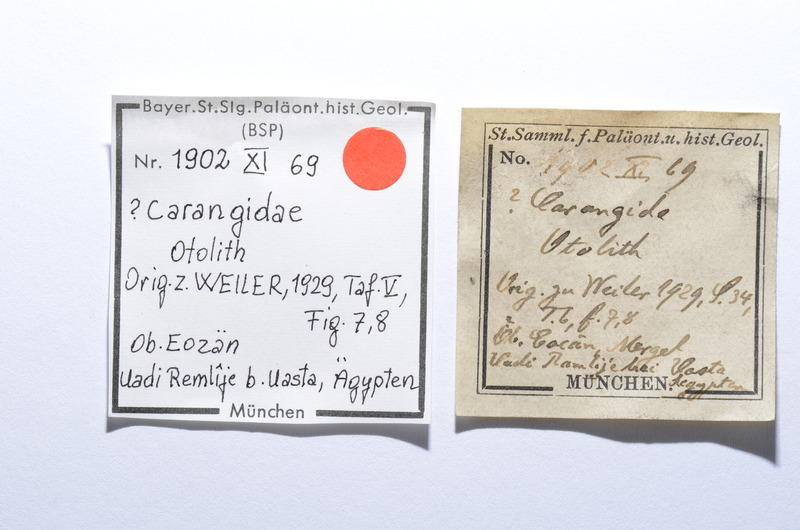 Bayer.St.Slg.Paläont.hist.Geol.
(BSP)
Nr. 1902 XI 69
? Carangidae
Otolith
Orig. z. WEILER, 1929, Taf. V,
Fig. 7,8
Ob. Eozän
Uadi Remlîje b. Uasta, Ägypten
München
St.Samml.f.Paläont.u.hist.Geol.
No. 1902 XI 69
? Carangide
Otolith
Orig. zu Weiler 1929, S. 34,
f. 7,8
? Ob. Eocän, Mergel
Uadi Ramlije bei Uasta
Aegypten
MÜNCHEN.